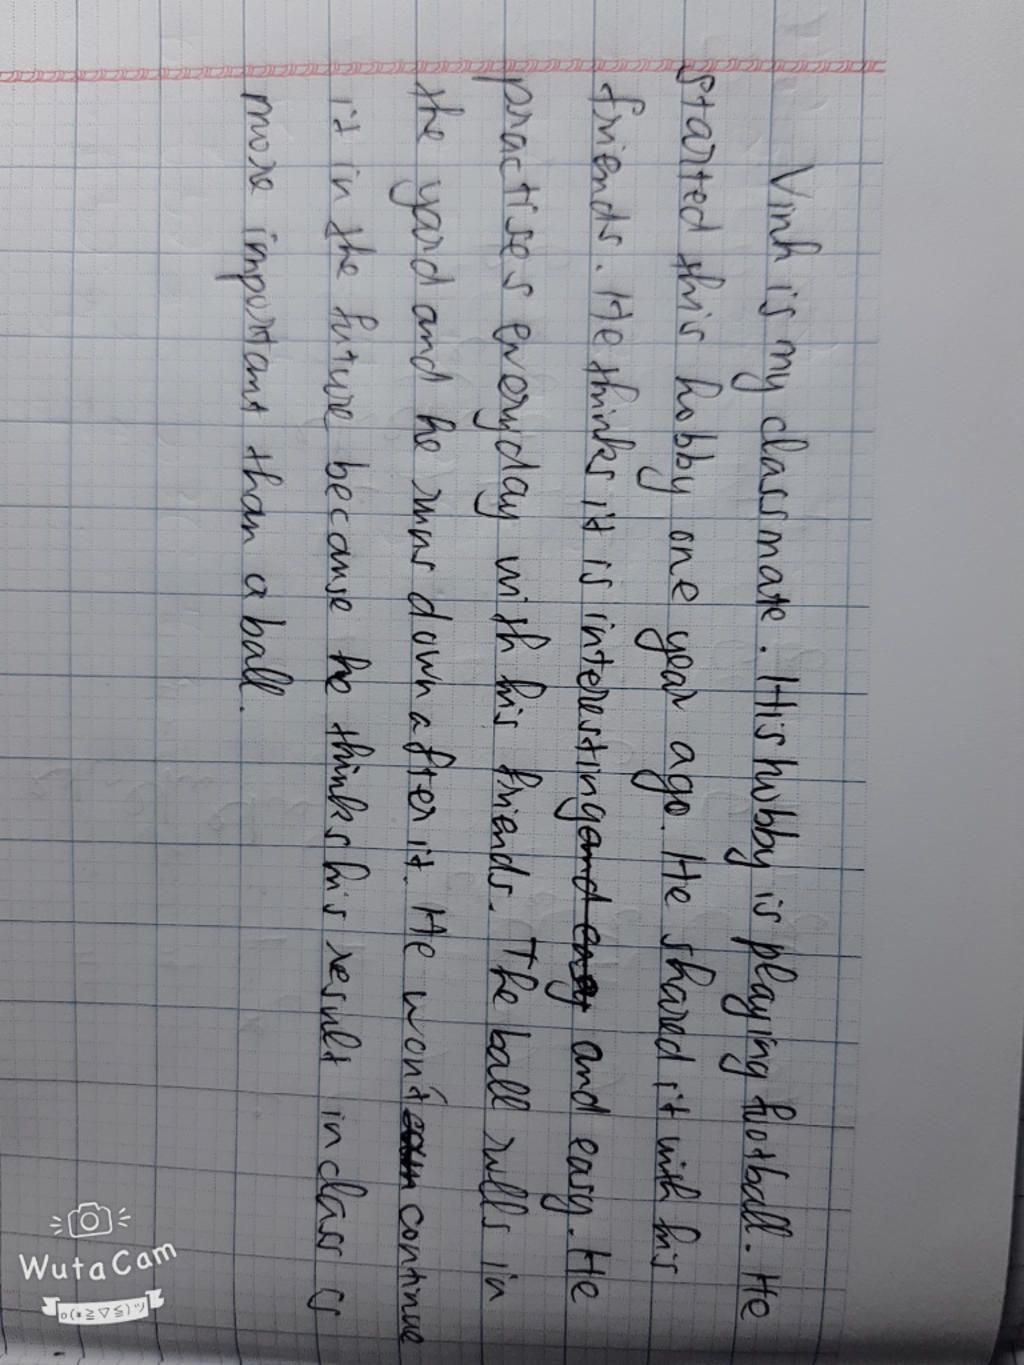 Vinh is my classmate. His hobby is playing football. He
started this hobby one year ago. He shared it with his
friends. He thinks it is interesting and easy and easy. He
practises everyday with his friends. The ball rulls in
the yard and he runs down after it. He won't continue
it in the future because he thinks his result in class is
more important than a ball.
WutaCam
o(*≧▽≦)ツ